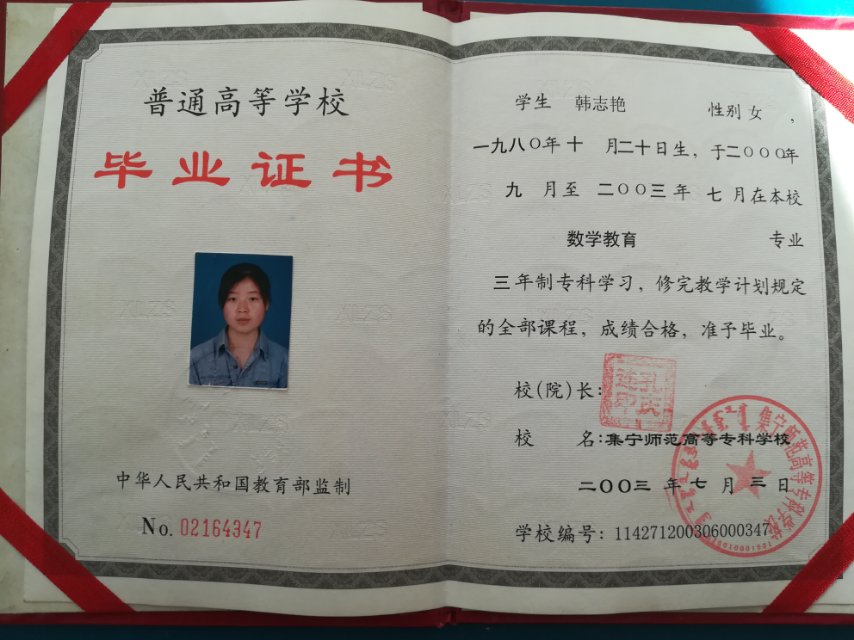 普通高等学校
毕业证书
中华人民共和国教育部监制
No. 02164347
学生 韩志艳 性别 女 ，
一九八〇年十 月二十日生，于二〇〇〇年
九 月至 二〇〇三 年 七 月在本校
数学教育 专业
三 年制专科学习，修完教学计划规定
的全部课程，成绩合格，准予毕业。
校(院)长：
校 名：集宁师范高等专科学校
二〇〇三 年 七 月 三 日
学校编号：114271200306000347
集宁师范高等专科学校